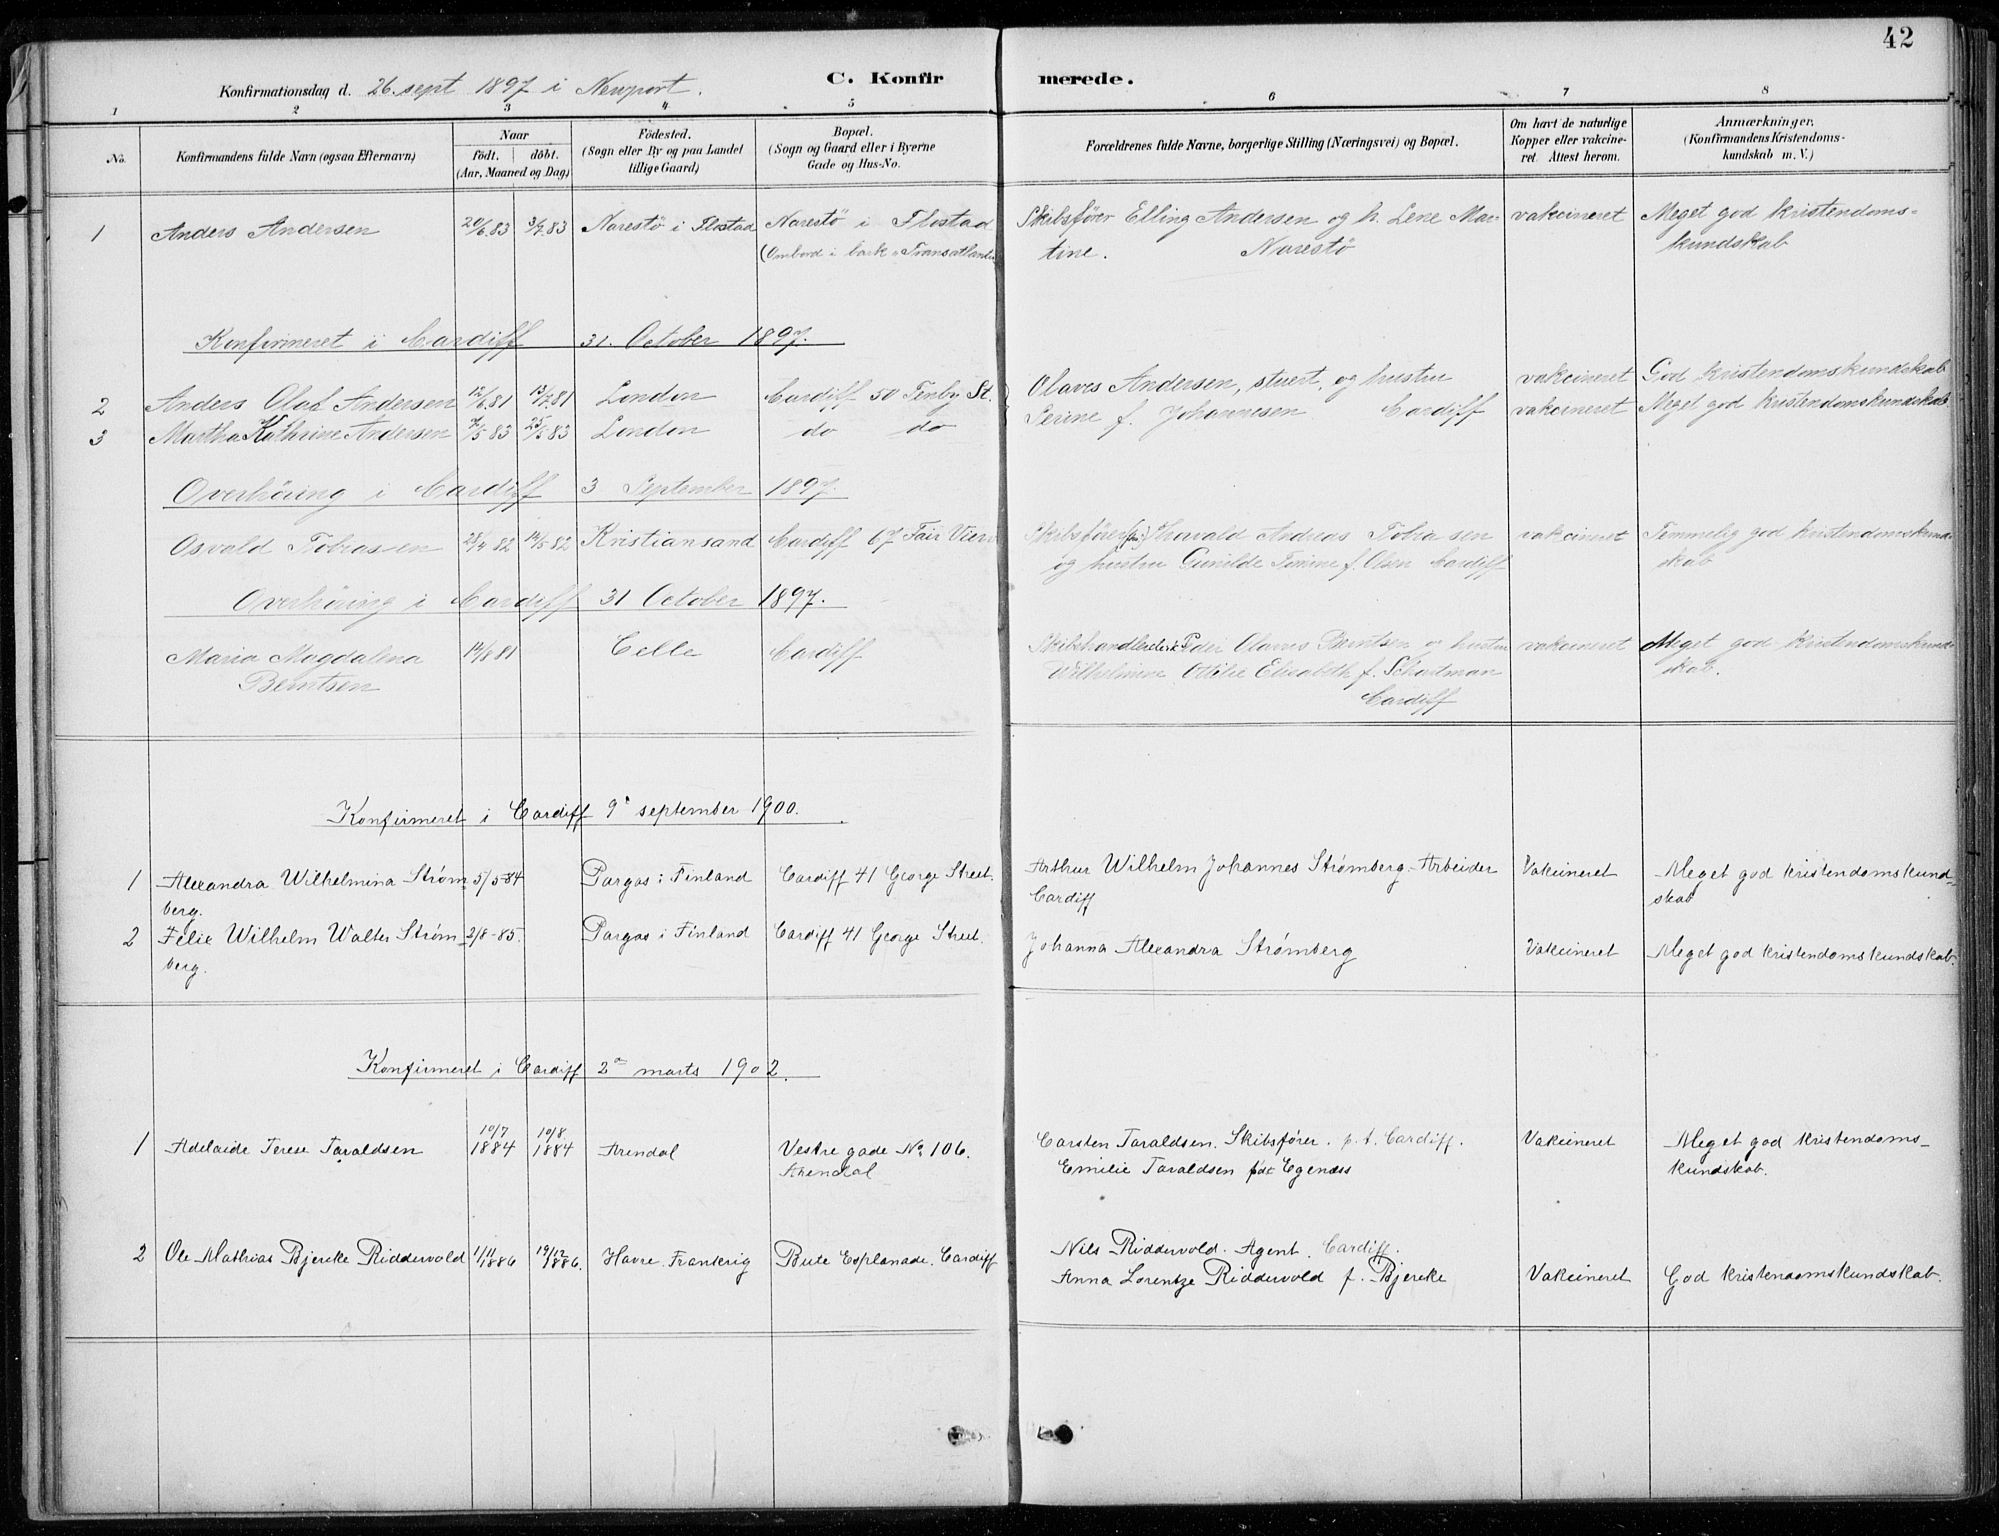 42
Konfirmationsdag d. 26. sept 1897 i Newport.
C. Konfirmerede.
1 2 3 4 5 6 7 8
No.
Konfirmandens fulde Navn (ogsaa Efternavn)
Naar
födt. döbt.
(Aar, Maaned og Dag)
Födested.
(Sogn eller By og paa Landet
tillige Gaard)
Bopæl.
(Sogn og Gaard eller i Byerne
Gade og Hus-No.
Forældrenes fulde Navne, borgerlige Stilling (Næringsvei) og Bopæl.
Om havt de naturlige
Kopper eller vakcine-
ret. Attest herom.
Anmærkninger.
(Konfirmandens Kristendoms-
kundskab m. V.)
1 Anders Andersen 20/6.83 3/7.83 Narestö i Flostad Narestö i Flostad Skibsfører Elling Andersen og h. Lene Mar- vakcineret Meget god kristendoms-
(Ombord i bark "Transatlantic tine. Narestö kundskab
Konfirmeret i Cardiff 31. October 1897.
2 Anders Olaf Andersen 12/6.81 13/7.81 London Cardiff 50 Tenby St. Olaves Andersen, stuert, og hustru vakcineret God kristendomskundskab
3 Martha Kathrine Andersen /5 83 25/5 83 London do do Serine f. Johannesen Cardiff vakcineret Meget god kristendomskundskab
Overhöring i Cardiff 3 September 1897.
Osvald Tobiassen 28/4 82 14/5 82 Kristiansand Cardiff 67 Fair View Skibsfører Harald Andreas Tobiassen vakcineret Temmelig god kristendomskund-
og hustru Gunilde Tomine f. Olsen Cardiff skab
Overhöring i Cardiff 31 October 1897.
Maria Magdalena 14/8 81 Celle Cardiff Skibshandlerclerk Peder Olaves Berntsen og hustru vakcineret Meget god kristendomskund-
Berntsen Wilhelmine Ottilie Elisabeth f. Schartman skab.
Cardiff
Konfirmeret i Cardiff 9de september 1900.
1 Alexandra Wilhelmina Strøm- 5/5-84 Pargas i Finland Cardiff 41 George Street. Arthur Wilhelm Johannes Strømberg. Arbeider Vakcineret Meget god kristendomskund-
berg. Cardiff skab
2 Felix Wilhelm Walter Strøm- 2/8-85. Pargas i Finland Cardiff 41 George Street. Johanna Alexandra Strømberg Vakcineret Meget god kristendomskundskab.
berg.
Konfirmeret i Cardiff 2den marts 1902.
1 Adelaide Terese Taraldsen 10/7 1884 10/8 1884 Arendal Vestre gade No. 106. Carsten Taraldsen. Skibsfører. p.t. Cardiff. Vakcineret Meget god kristendoms-
Arendal Emilie Taraldsen født Egenæss kundskab.
2 Ole Mathias Bjercke Riddervold 1/11 1886 19/12 1886. Havre. Frankrig Bute Esplanade. Cardiff Nils Riddervold. Agent. Cardiff.
Anna Lorentze Riddervold f. Bjercke Vakcineret God kristendomskundskab.